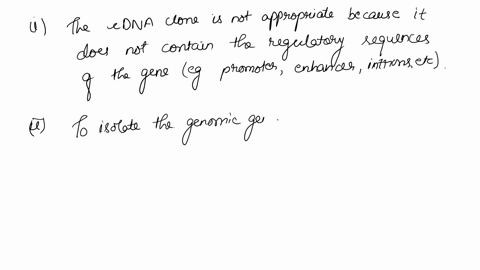 (i) The cDNA clone is not appropriate because it
does not contain the regulatory sequences
of the gene (eg promoter, enhancer, introns, etc).
(ii) To isolate the genomic ge